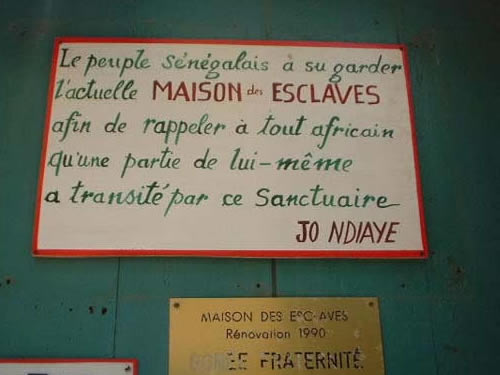 Le peuple sénégalais à su garder
l'actuelle MAISON des ESCLAVES
afin de rappeler à tout africain
qu'une partie de lui-même
a transité par ce Sanctuaire
JO NDIAYE
MAISON DES ESCLAVES
Rénovation 1990
GOREE FRATERNITÉ